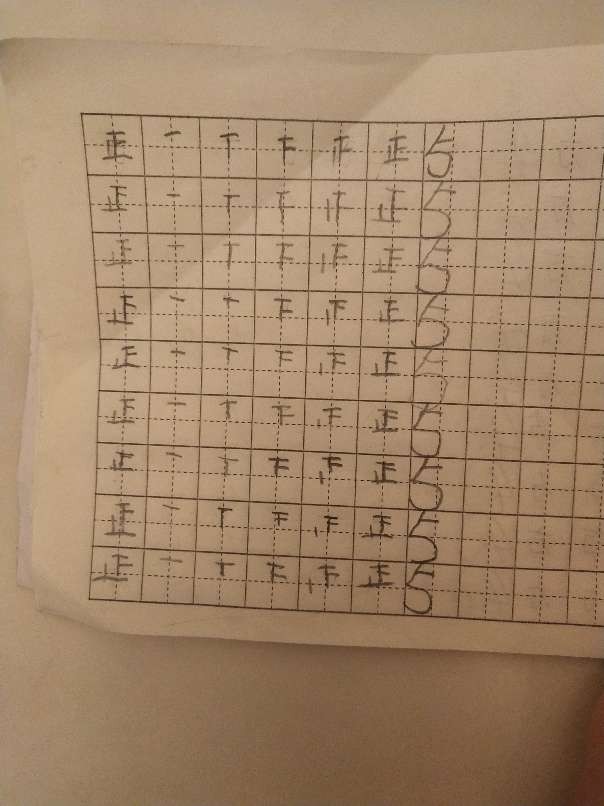 正 一 丅 下 正 正 5
正 一 丅 下 正 正 5
正 一 丅 下 正 正 5
正 一 丅 下 正 正 5
正 一 丅 下 正 正 5
正 一 丅 下 正 正 5
正 一 丅 下 正 正 5
正 一 丅 下 正 正 5
正 一 丅 下 正 正 5